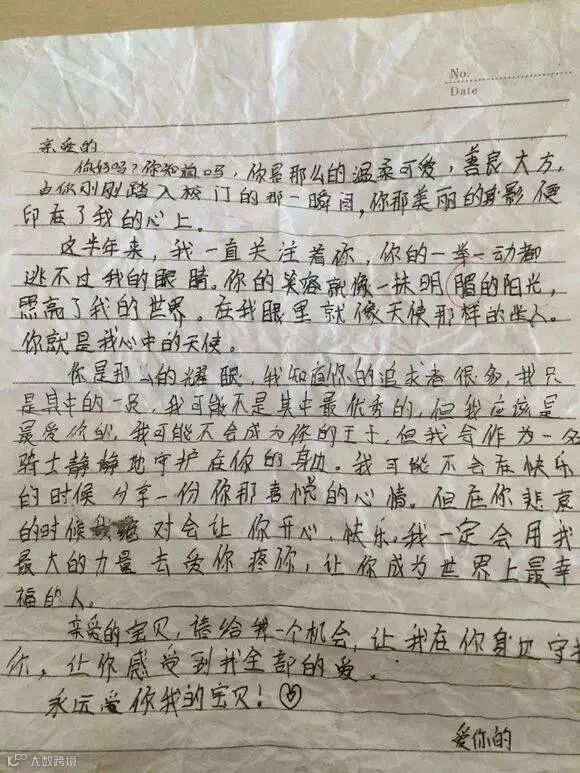 No.
Date
亲爱的
你好吗?你知道吗,你是那么的温柔可爱,善良大方,
当你刚刚踏入校门的那一瞬间,你那美丽的身影便
印在了我的心上。
这半年来,我一直关注着你,你的一举一动都
逃不过我的眼睛。你的笑容就像一抹明媚的阳光,
照亮了我的世界。在我眼里就像天使那样的坐人。
你就是我心中的天使。
你是那么的耀眼,我知道你的追求者很多,我只
是其中的一员,我可能不是其中最优秀的,但我应该是
最爱你的,我可能不会成为你的王子,但我会作为一名
骑士静静地守护在你的身边。我可能不会在快乐
的时候分享一份你那喜悦的心情。但在你悲哀
的时候我绝对会让你开心、快乐。我一定会用我
最大的力量去爱你疼你,让你成为世界上最幸
福的人。
亲爱的宝贝,请给我一个机会,让我在你身边守护
你,让你感受到我全部的爱。
永远爱你我的宝贝!
爱你的
大数跨境